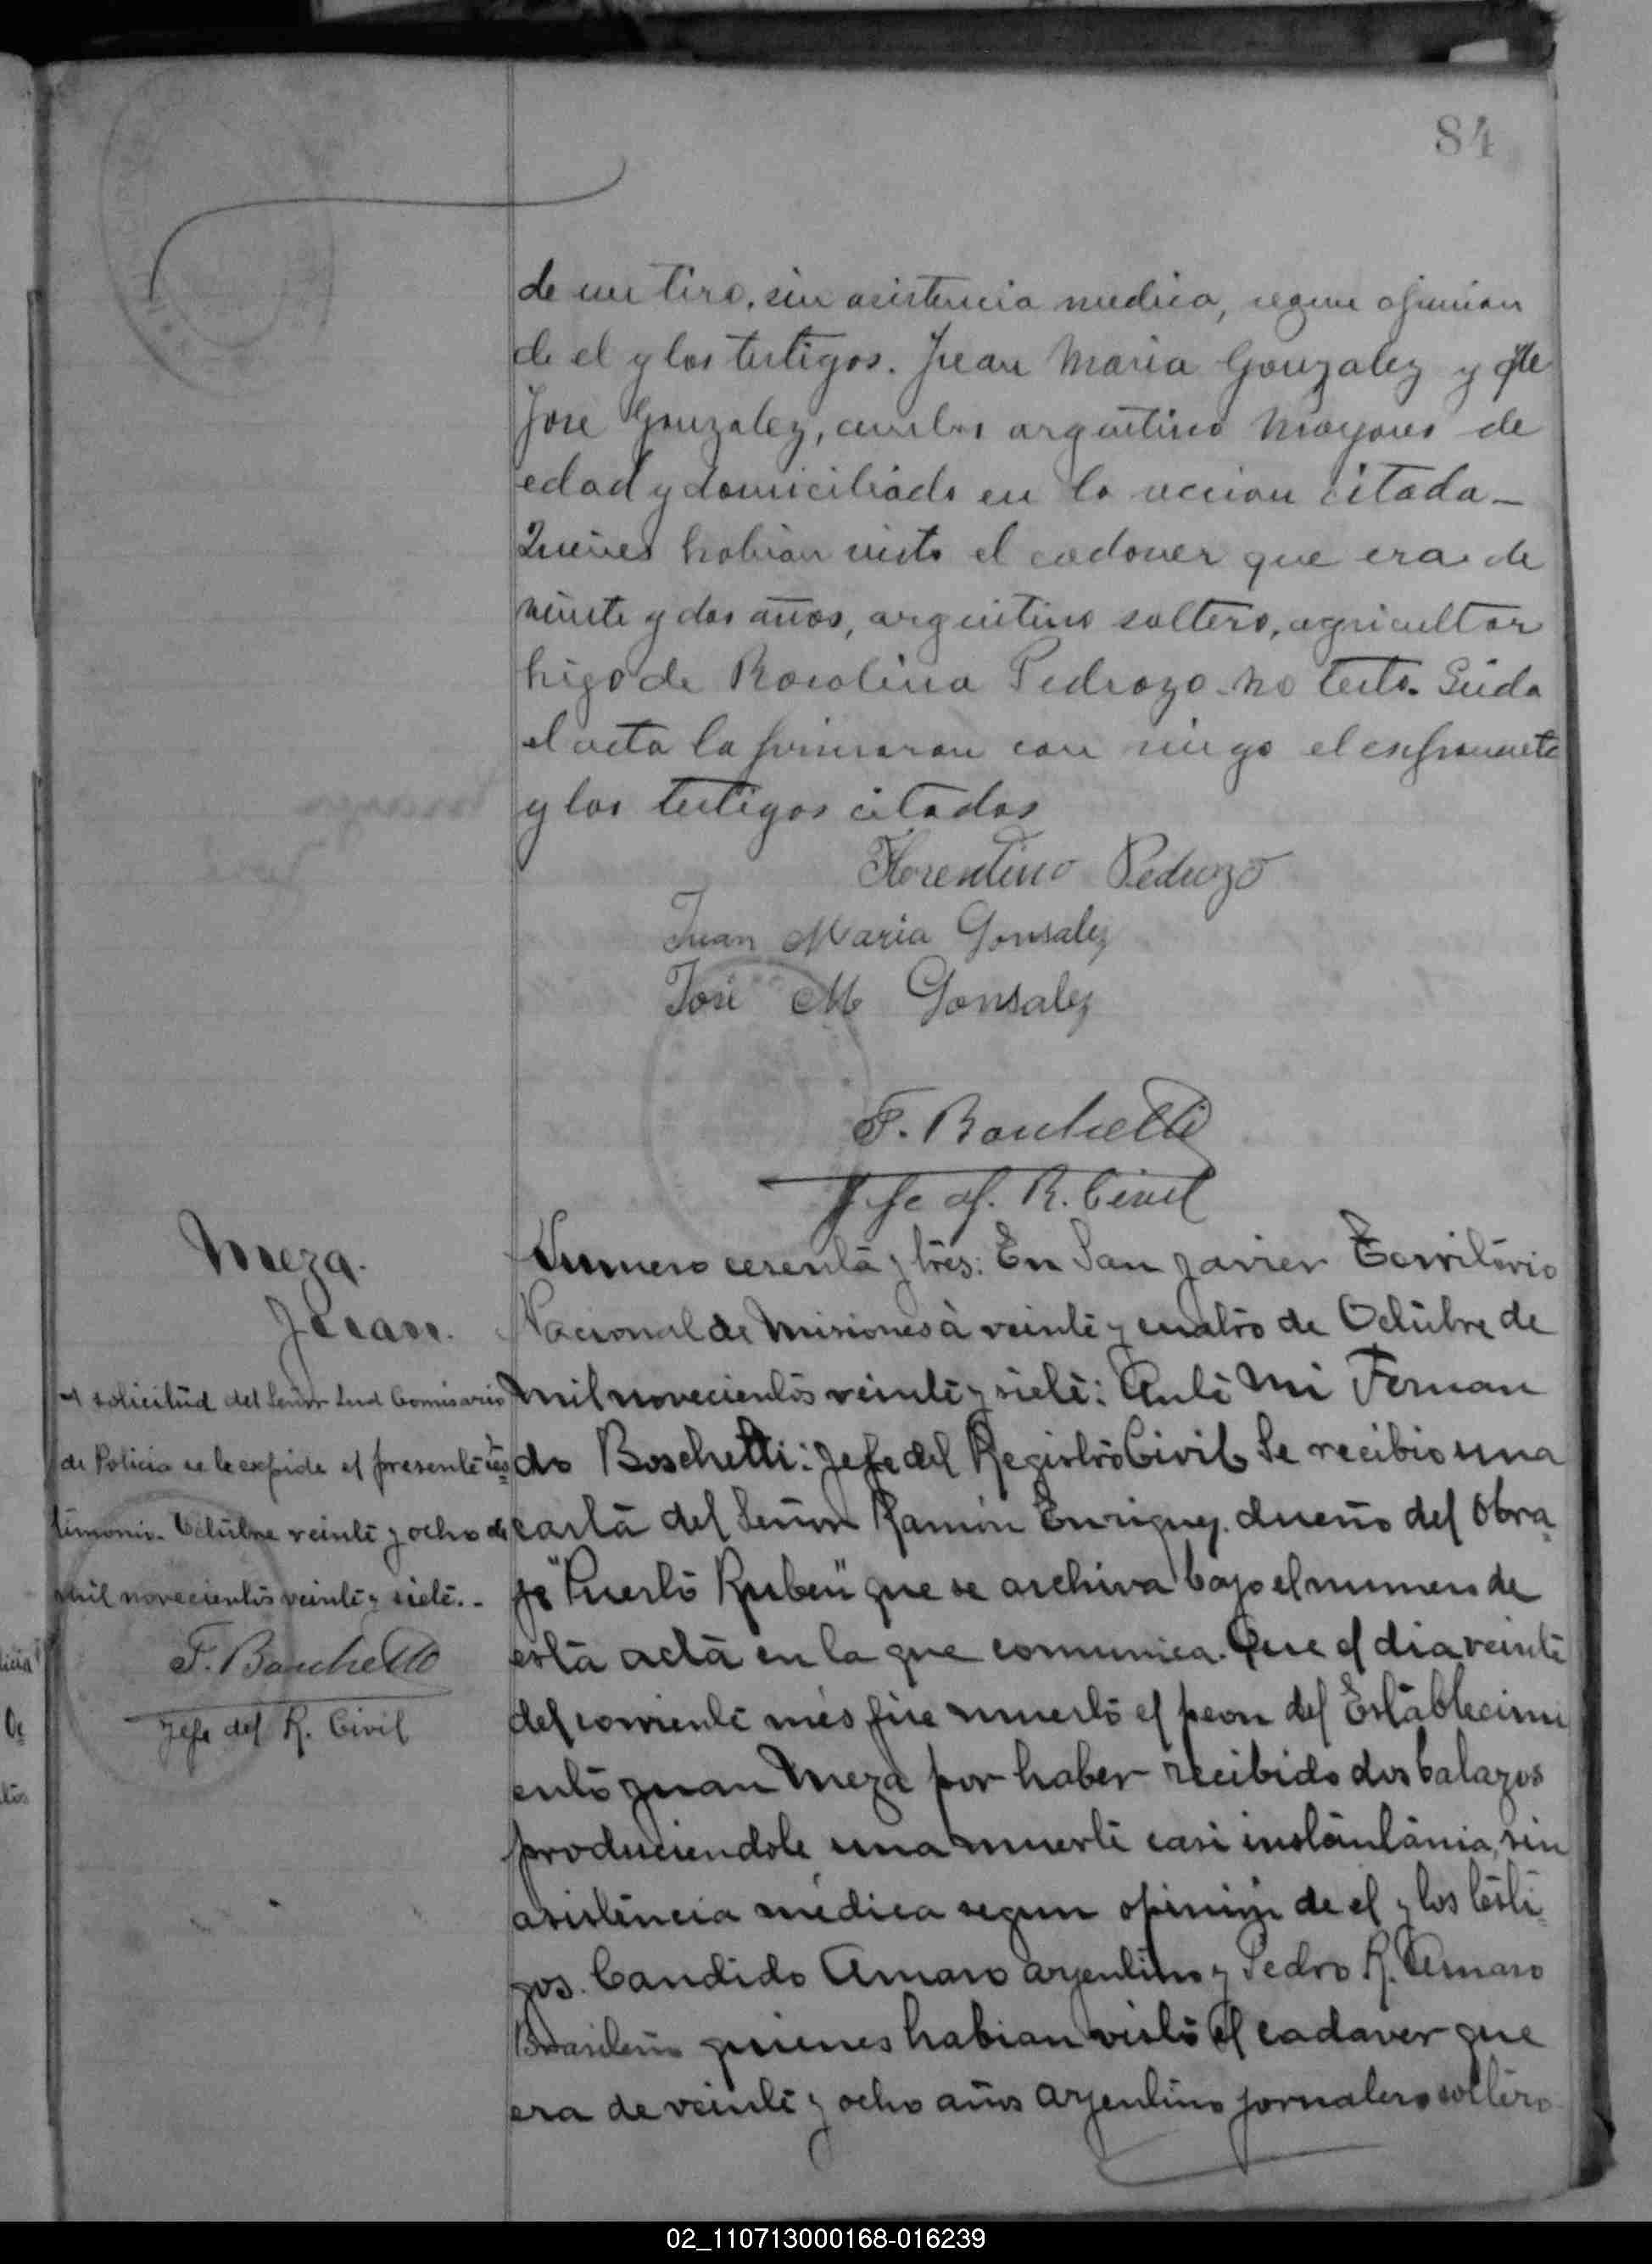 84
de un tiro, sin asistencia medica, segun opinion
de el y los testigos. Juan Maria Gonzalez y de
Jose Gonzalez, ambos argentino mayores de
edad y domiciliado en la seccion citada -
Quienes habian visto el cadaver que era de
veinte y dos años, argentino soltero, agricultor
higo de Rosolina Pedrozo no testo. Leida
el acta la firmaron con migo el esponente
y los testigos citados
Florentino Pedrozo
Juan Maria Gonsalez
José M Gonsalez
F. Boschetti
Jefe del R. Civil
Meza.
Juan.
A solicitud del Señor Comisario
de Policia se le expide el presente tes=
timonio. Octubre veinte y ocho de
mil novecientos veinte y siete. -
F. Boschetti
Jefe del R. Civil
Numero cesenta y tres: En San Javier Territorio
Nacional de Misiones à veinte y cuatro de Octubre de
mil novecientos veinte y siete: Ante mi Fernan
do Boschetti: Jefe del Registro Civil Se recibio una
carta del Señor Ramón Enriquez. dueño del Obra=
je "Puerto Ruben" que se archiva bajo el numero de
esta acta en la que comunica. Que el dia veinte
del corriente més fue muerto el peon del Establecimi
ento Juan Meza por haber recibido dos balazos
produciendole una muerte casi instantania, sin
asistencia médica segun opinión de el y los testi=
gos. Candido Amaro arjentino y Pedro R. Amaro
Brasileño quienes habian visto el cadaver que
era de veinte y ocho años arjentino jornalero soltero
02_110713000168-016239